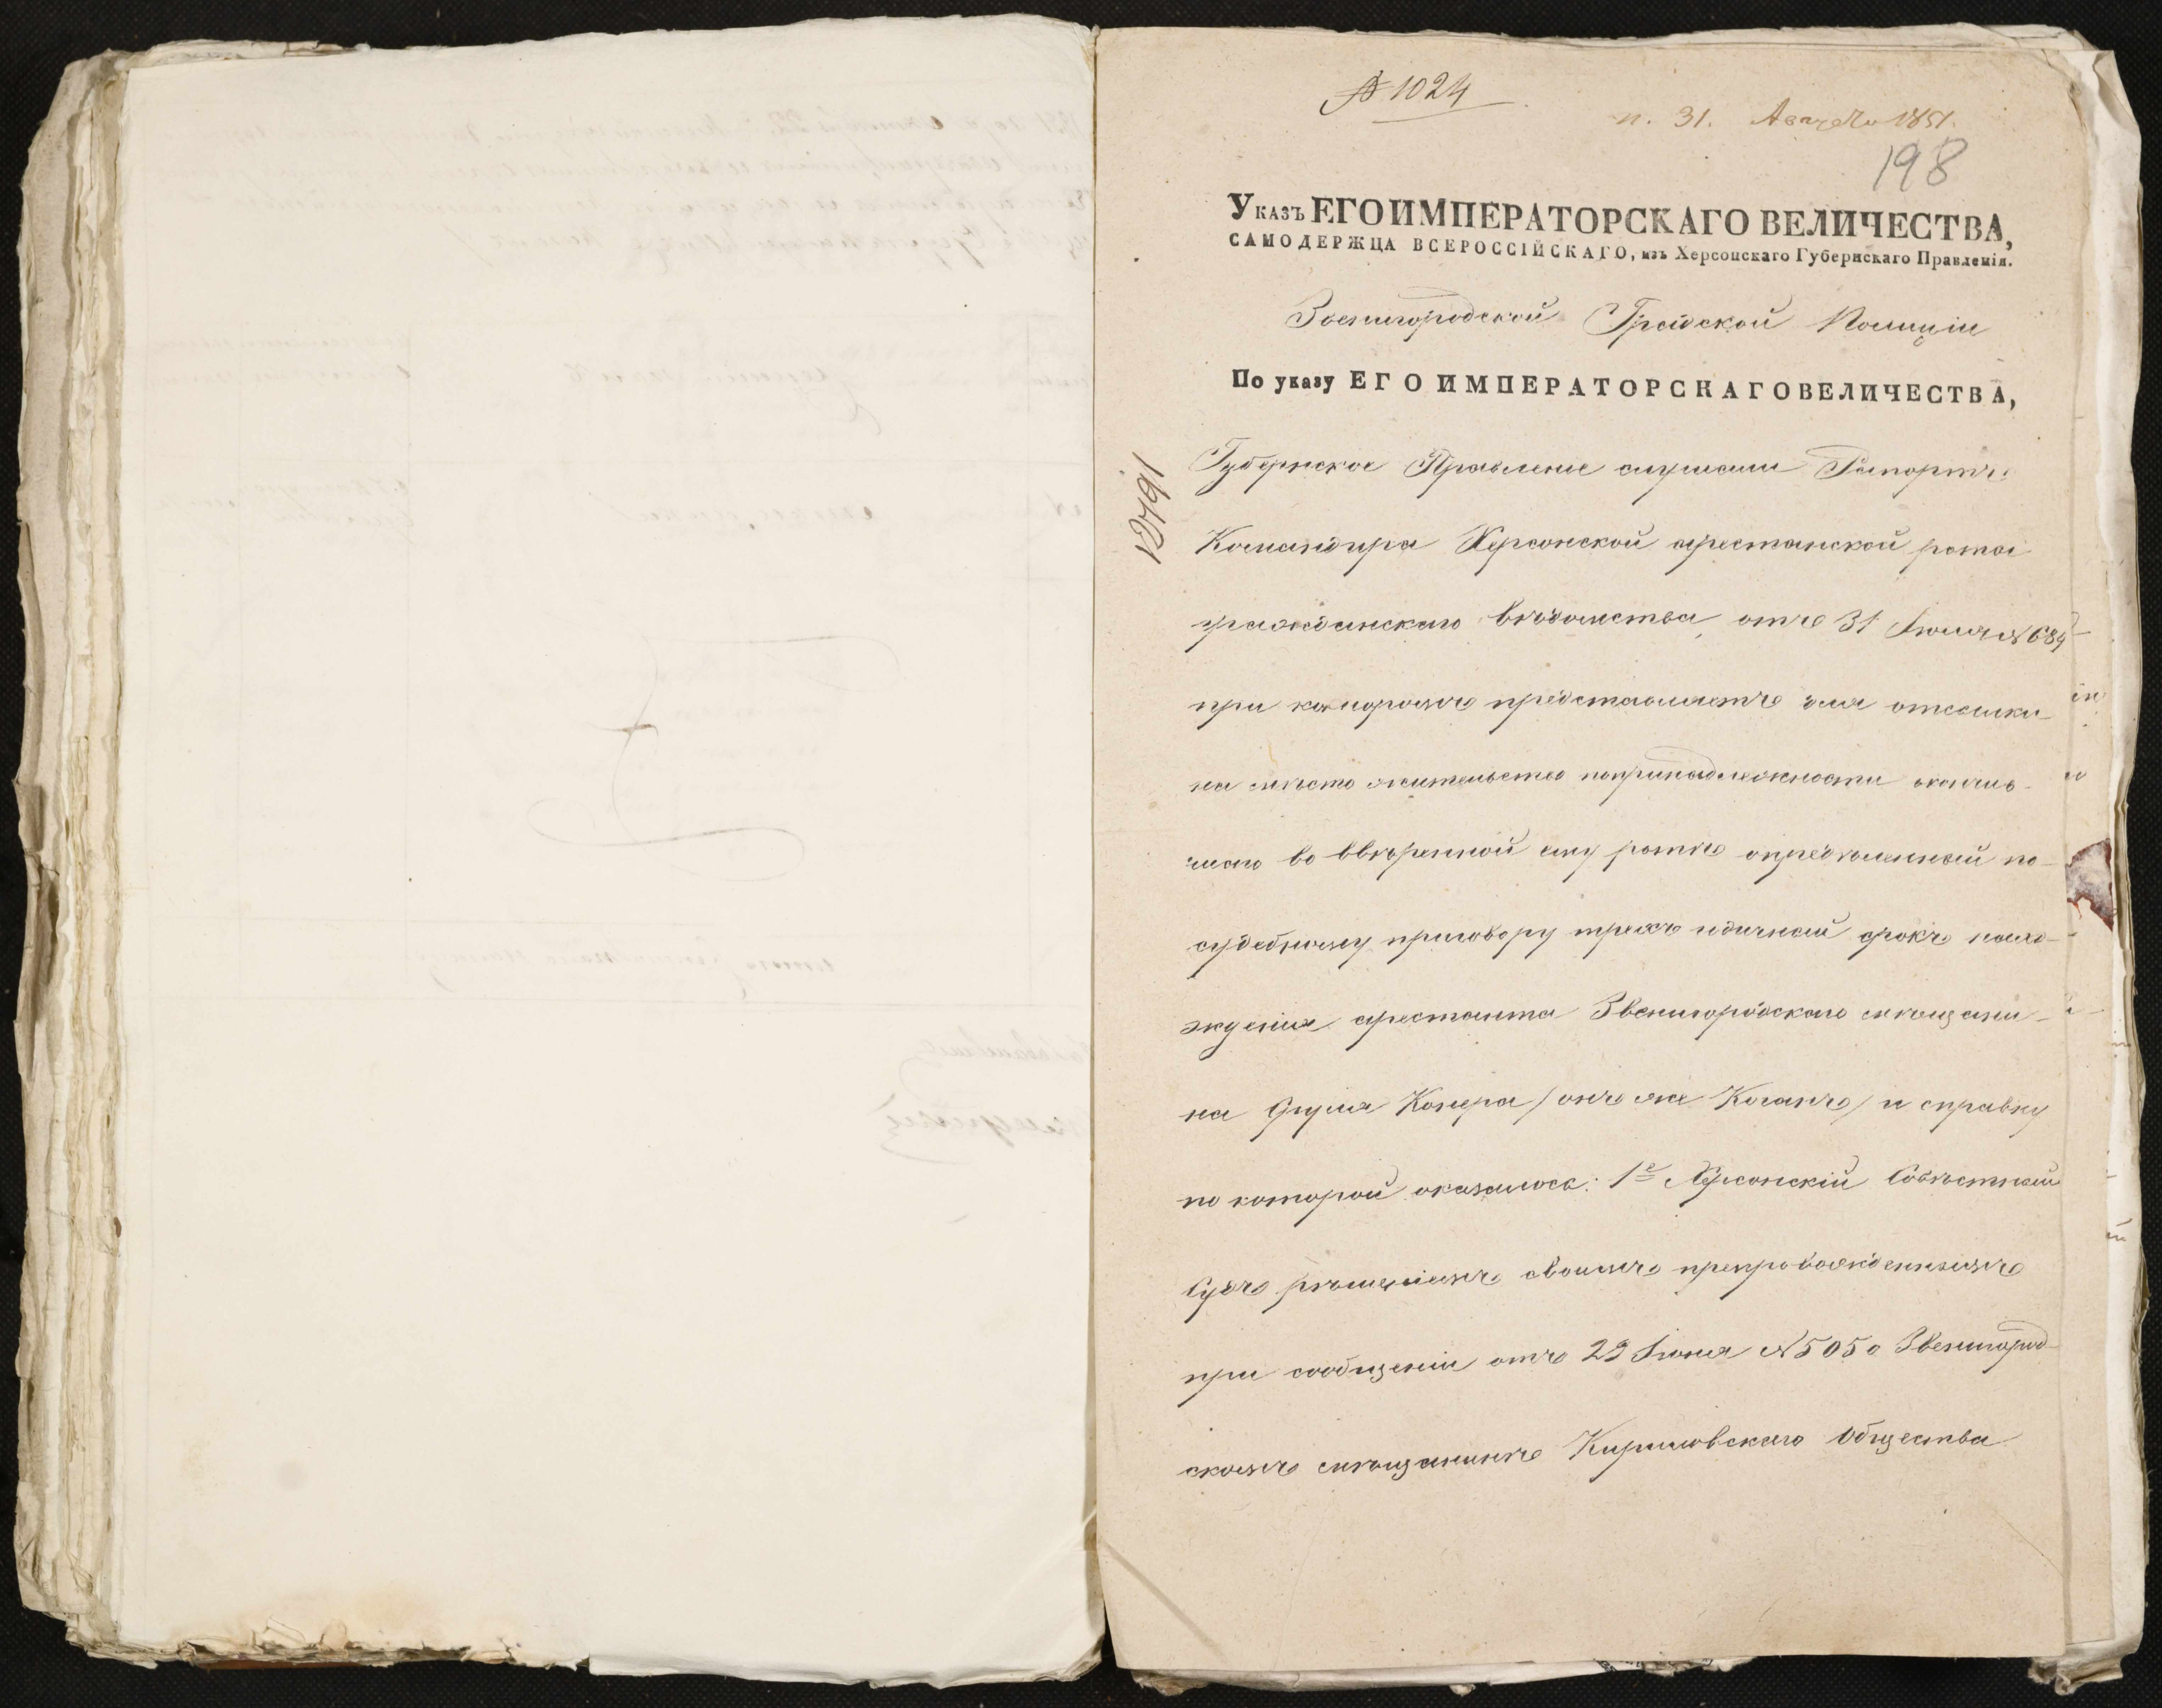 № 1024
п. 31. Августа 1851.
198
Указъ ЕГО ИМПЕРАТОРСКАГО ВЕЛИЧЕСТВА,
САМОДЕРЖЦА ВСЕРОССІЙСКАГО, изъ Херсонскаго Губернскаго Правленія.
Звенигородской Градской Полиціи
По указу ЕГО ИМПЕРАТОРСКАГО ВЕЛИЧЕСТВА,
Губернское Правленіе слушали Рапортъ
Командира Херсонской арестантской роты
гражданскаго вѣдомства отъ 31 Іюля № 684
при которомъ представляетъ для отсылки
на мѣсто жительства по принадлежности окончив-
шаго во ввѣренной ему ротѣ опредѣленный по
судебному приговору трехъ годичный срокъ нахо-
жденія арестанта Звенигородскаго мѣщани-
на Сруля Конера /онъ же Коганъ/ и справку
по которой оказалось: 1е Херсонскій Совѣстный
Судъ рѣшеніемъ своимъ препровожденнымъ
при сообщеніи отъ 22 Іюня № 5050 Звенигород-
скомъ мѣщанинѣ Кириловскаго Общества